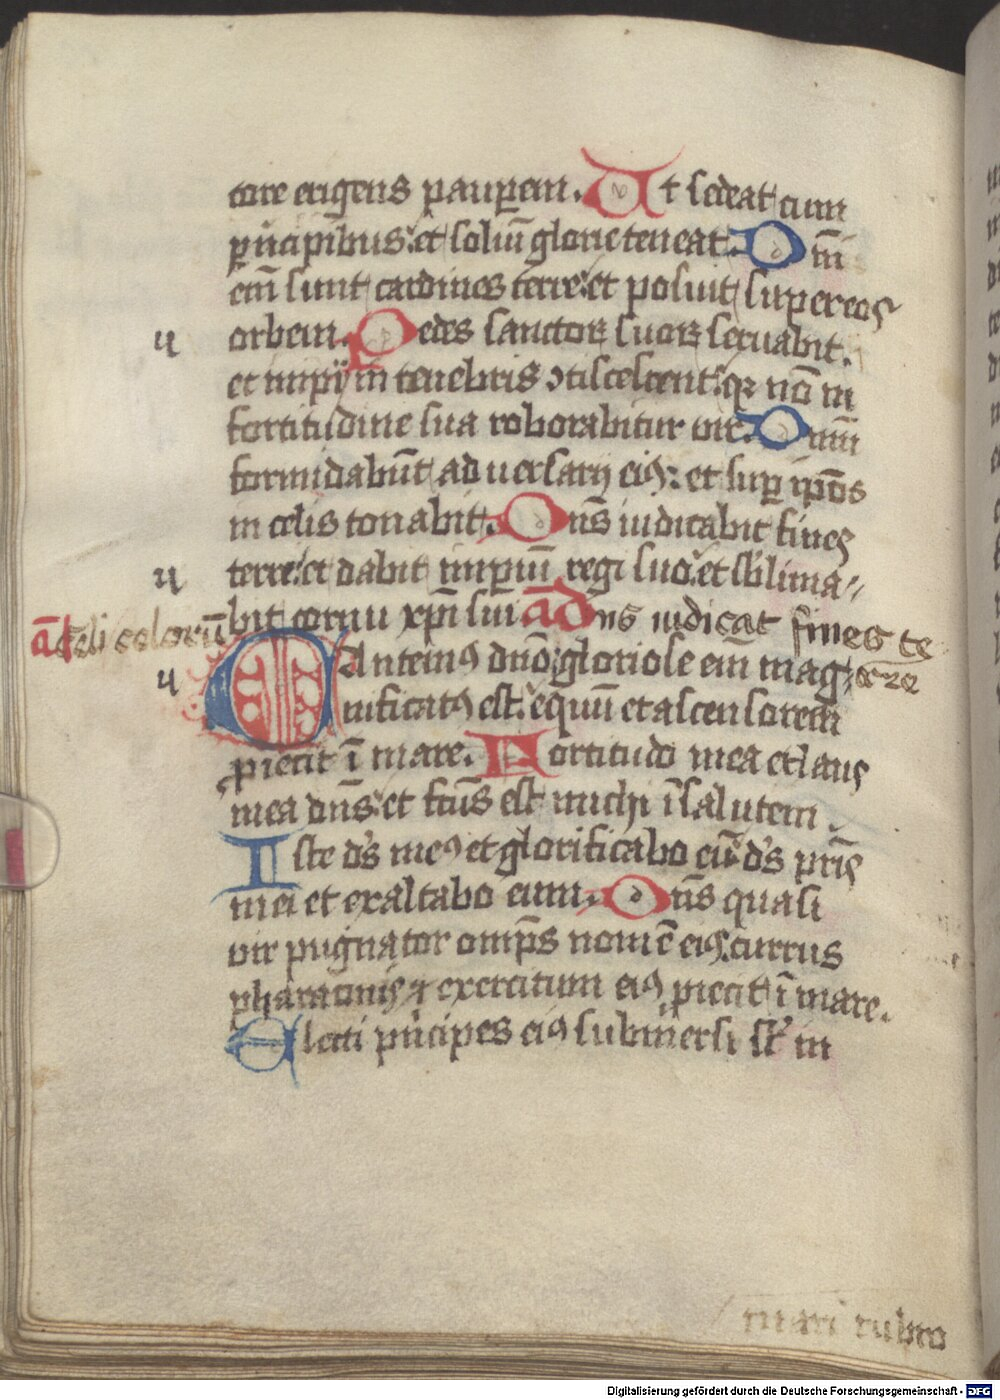 core erigens pauꝑem. Ut sedeat cum
pͥncipibus: et soliū glorie teneat. Dnī
em̄ sunt cardines terre: et posuit super eos
orbem. Pedes sanctoꝝ suoꝝ seruabit.
et impij in tenebris ↄticescent: qꝛ nō in
fortitudine sua roborabitur vir. Dnm̄
formidabūt aduersarij eiꝰ: et suꝑ ip̄os
in celis tonabit. Dn̄s iudicabit fines
terre: et dabit imꝑiū regi suo: et sb̓lima⸗
bit cornu xp̄i sui aD ns iudicat fines te
ad celi celorū
Cantemꝰ dn̄o: gloriose em̄ mag⸗ rre
nificatꝰ est: equū et ascensorem
ꝓiecit ī mare. Fortitudo mea et laus
mea dn̄s: et fctūs est michi ī salutem.
Iste ds̄ meꝰ et glorificabo eū: ds̄ pr̄is
mei et exaltabo eum. Dn̄s quasi
vir pugnator omp̄s nomē eiꝰ. currus
pharaonis ⁊ exercitum eiꝰ ꝓiecit ī mare.
Electi pͥncipes eiꝰ submersi st̄ in
mari rubro
Digitalisierung gefördert durch die Deutsche Forschungsgemeinschaft - DFG